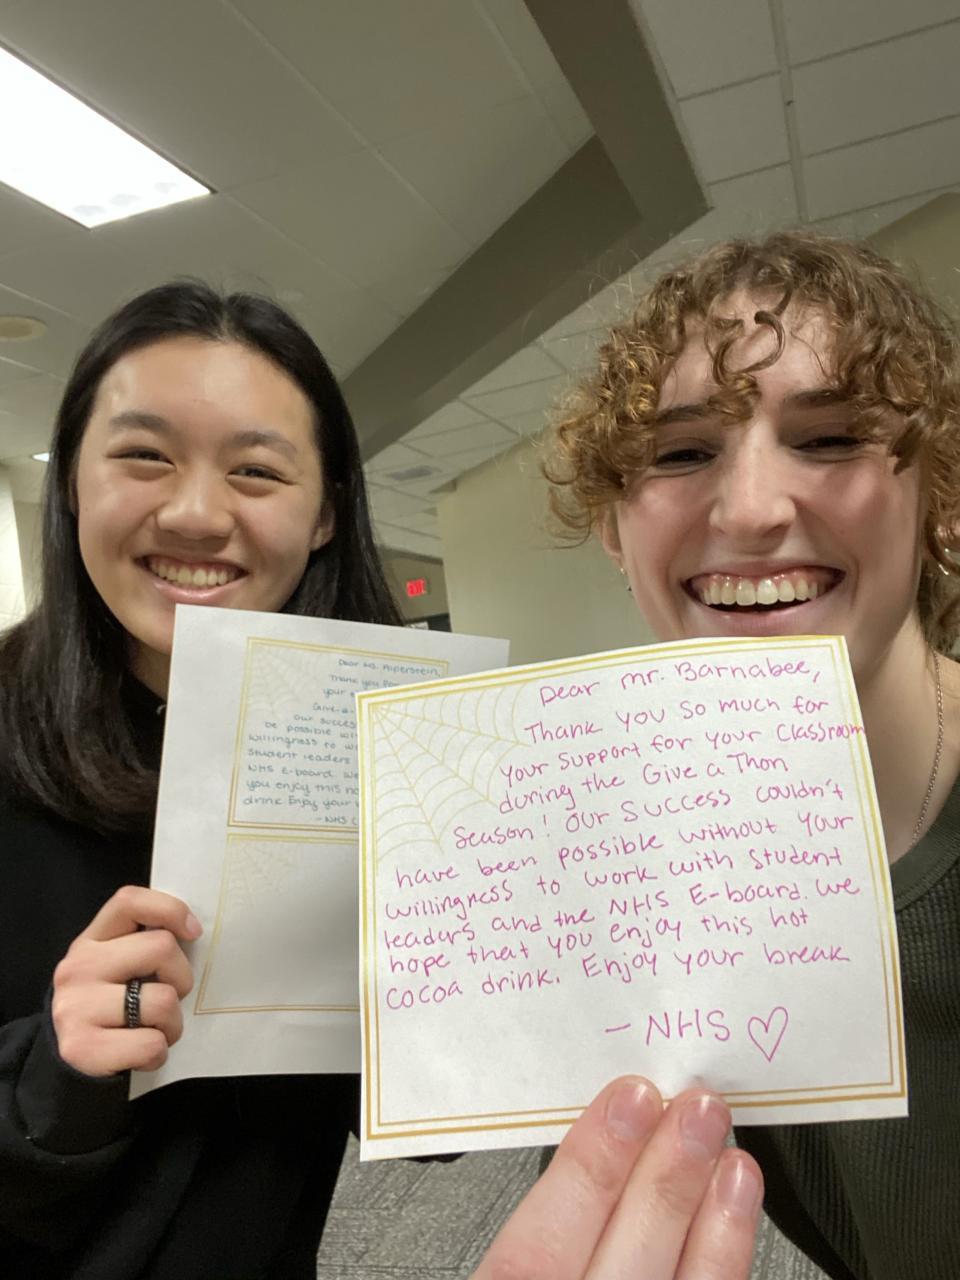 Dear Mr. Barnabee,
Thank you so much for
your support for your classroom
during the Give a Thon
Season! Our success couldn't
have been possible without your
willingness to work with student
leaders and the NHS E-board. We
hope that you enjoy this hot
cocoa drink. Enjoy your break
- NHS ♡
Dear Ms. Piperstein,
Thank you for
your
Give-a-
our success
be possible wi
willingness to w
student leaders
NHS E-board. We
you enjoy this ho
drink. Enjoy your
- NHS
EXIT